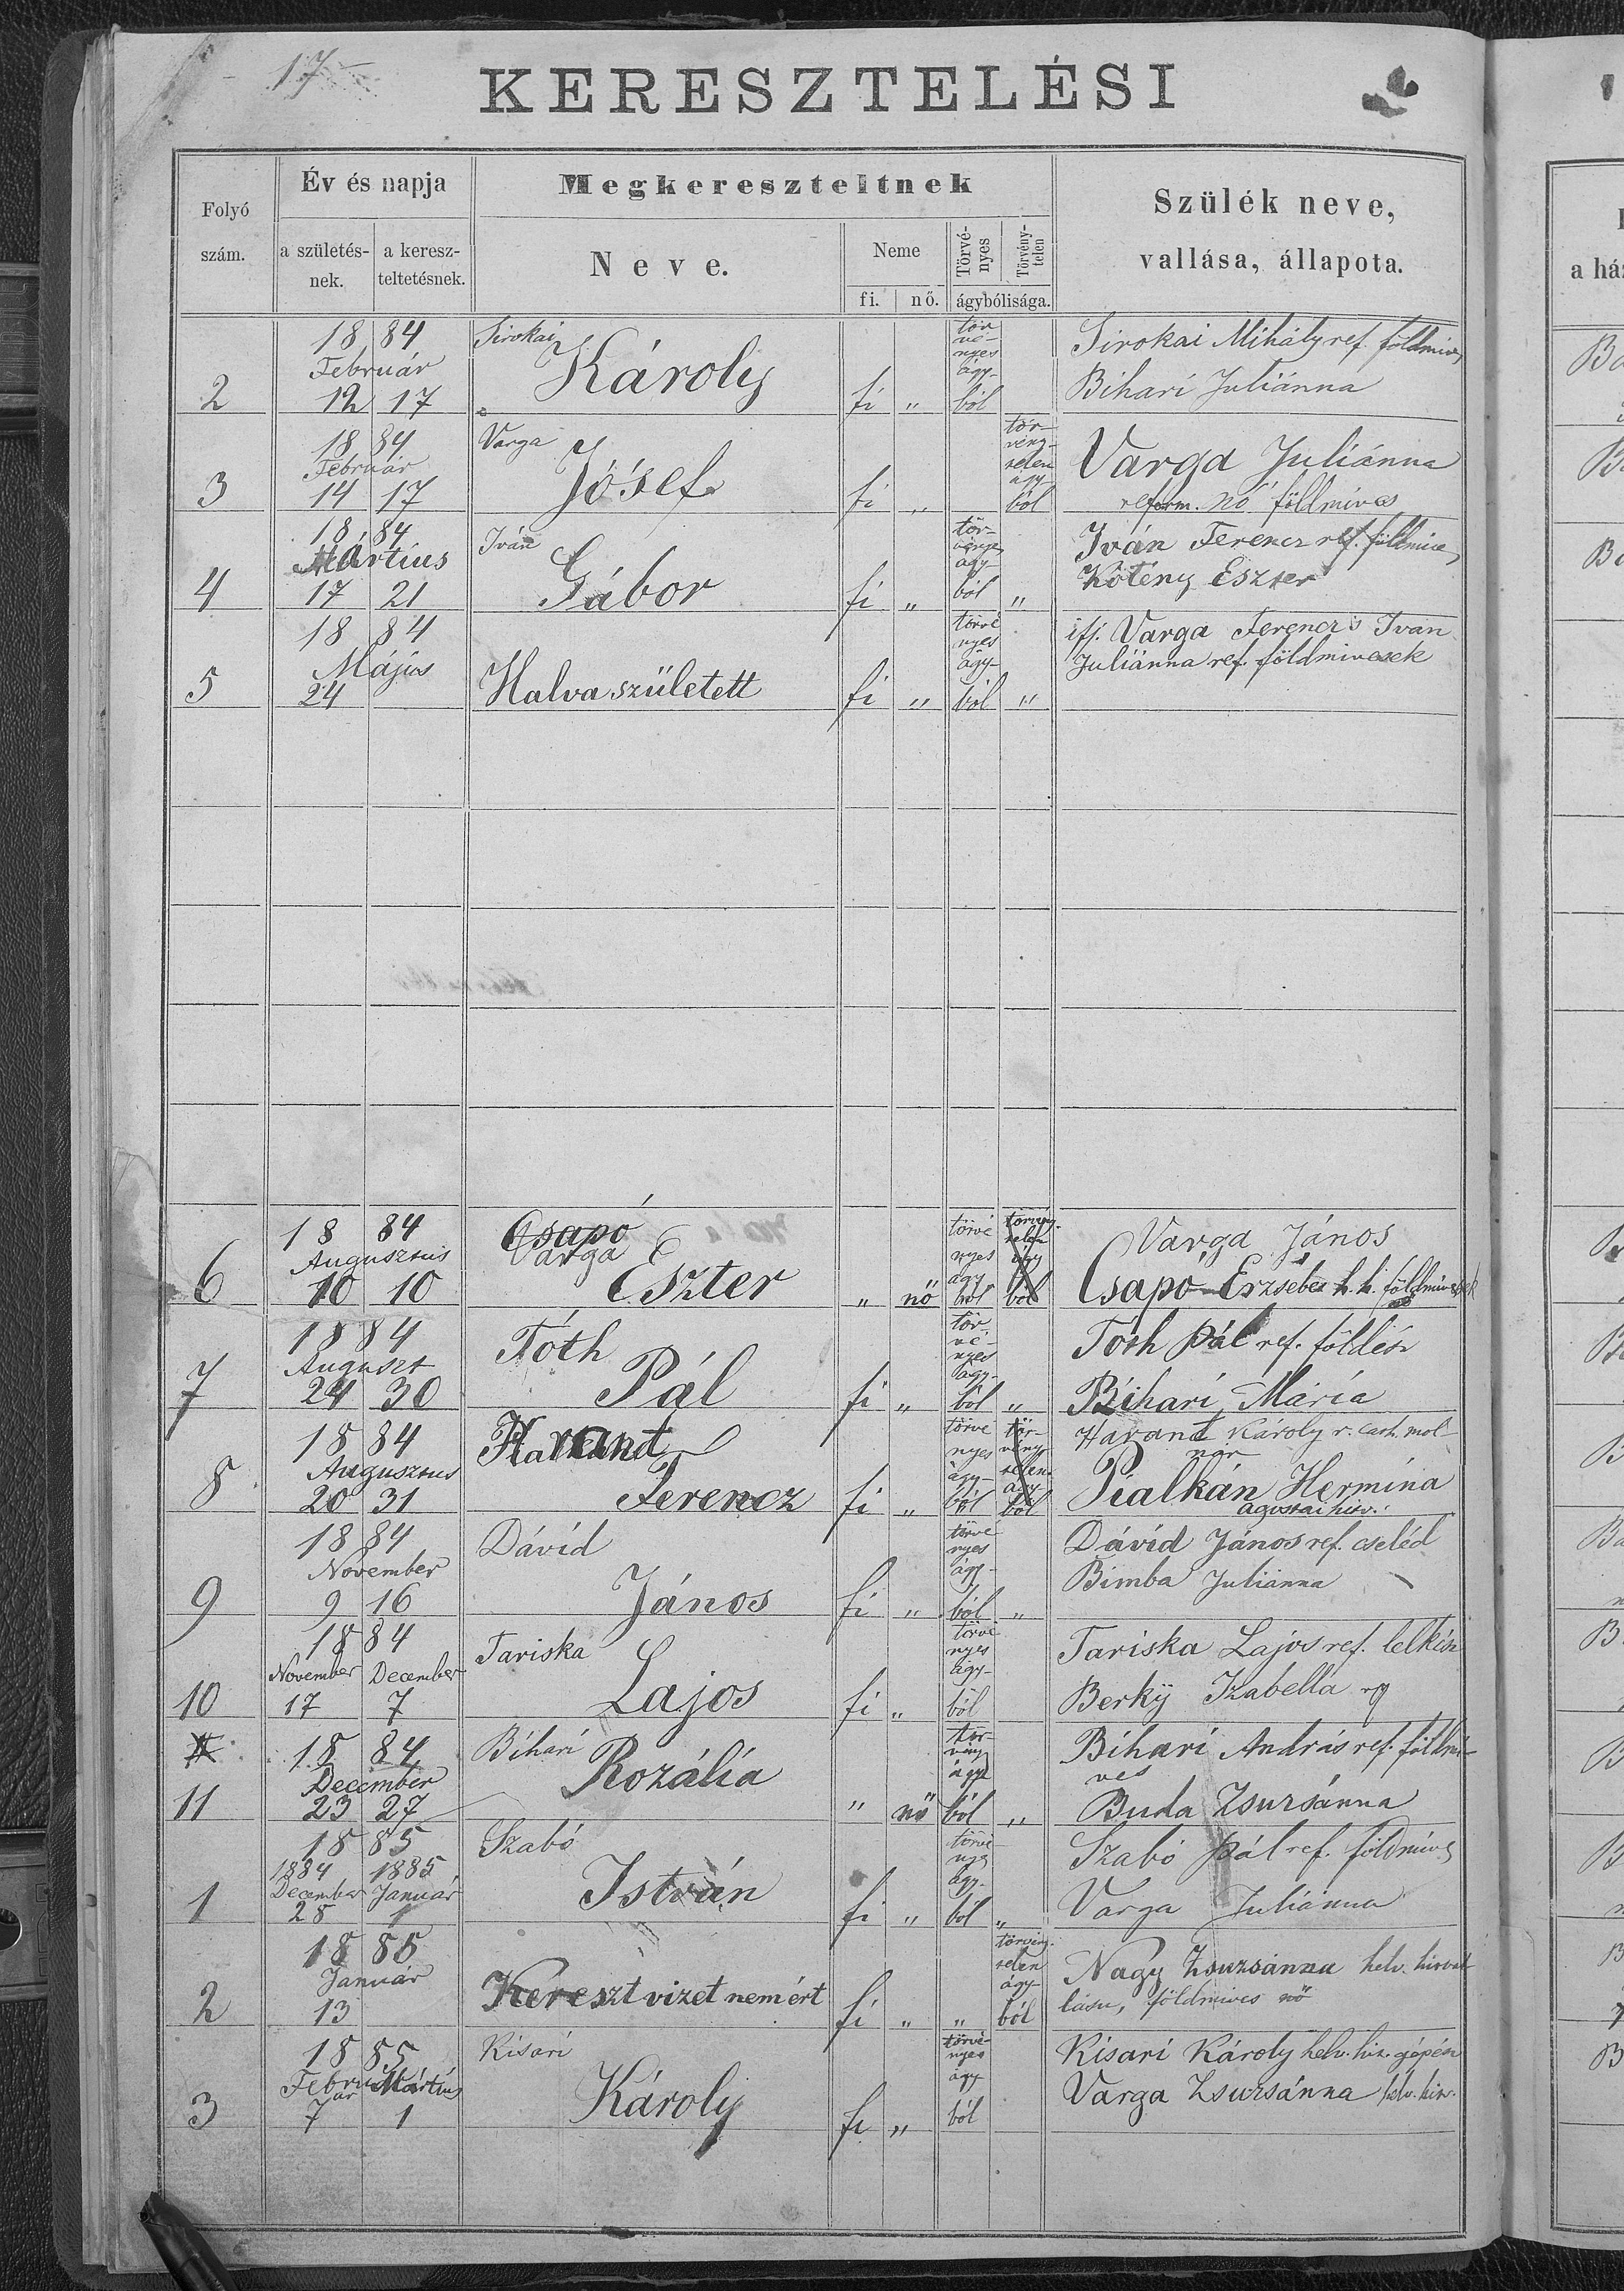 17
KERESZTELÉSI
Folyó szám.
Év és napja
a születés-nek.
a keresz-teltetésnek.
Megkereszteltnek
Neve.
Neme
fi. nő.
Törvé-nyes
Törvény-telen
ágybólisága.
Szülék neve,
vallása, állapota.
a há
18 84
Február
2 12 17
Sirokai
Károly
fi „
tör
vé-
nyes
ágy-
ból
Sirokai Mihály ref. földmives
Bihari Juliánna
18 84
Február
3 14 17
Varga
Jósef
fi „
tör-
vény-
telen
ágy
ból
Varga Juliánna
reform. nő földmives
18 84
Mártius
4 17 21
Iván
Gábor
fi „
tör-
vényes
ágy-
ból „
Iván Ferencz ref. földmives
Kötény Eszter
18 84
Május
5 24
Halva született
fi „
törvé
nyes
ágy-
ból „
ifj. Varga Ferencz s Iván
Juliánna ref. földmivesek
18 84
Augusztus
6 10 10
Csapó
Varga
Eszter
„ nő
törvé
nyes
ágy
ból
törvény-
telen
ágy
ból
Varga János
Csapó Erzsébet h. h. földmivesek
18 84
Auguszt
7 24 30
Tóth
Pál
fi „
tör-
vé-
nyes
ágy-
ból „
Tóth Pál ref. földész
Bihari Mária
18 84
Augusztus
8 20 31
Harant
Ferencz
fi „
törvé
nyes
ágy-
ból
tör-
vény-
telen
ágy
ból
Harant Károly r. cath. mol-
nár
Pialkán Hermina
ágostai hitv.
18 84
November
9 9 16
Dávid
János
fi „
törvé
nyes
ágy-
ból „
Dávid János ref. cseléd
Bimba Juliánna
18 84
November December
10 17 7
Tariska
Lajos
fi „
törvé
nyes
ágy-
ból
Tariska Lajos ref. lelkész
Berky Izabella
18 84
December
11 23 27
Bihari
Rozália
„ nő
tör
vény
ágy
ból „
Bihari András ref. földmi-
ves
Buda Zsuzsánna
18 85
1884 1885
December Január
1 28 1
Szabó
István
fi „
törvé
nyes
ágy-
ból „
Szabó Pál ref. földmives
Varga Juliánna
18 85
Január
2 13
Keresztvizet nem ért
fi „ „
törvény-
telen
ágy-
ból
Nagy Zsuzsánna helv. hitval
lásu, földmives nő
18 85
Február Mártius
3 7 1
Kisari
Károly
fi „
törvé-
nyes
ágy
ból
Kisari Károly helv. hit. gépész
Varga Zsuzsánna helv. hitv.